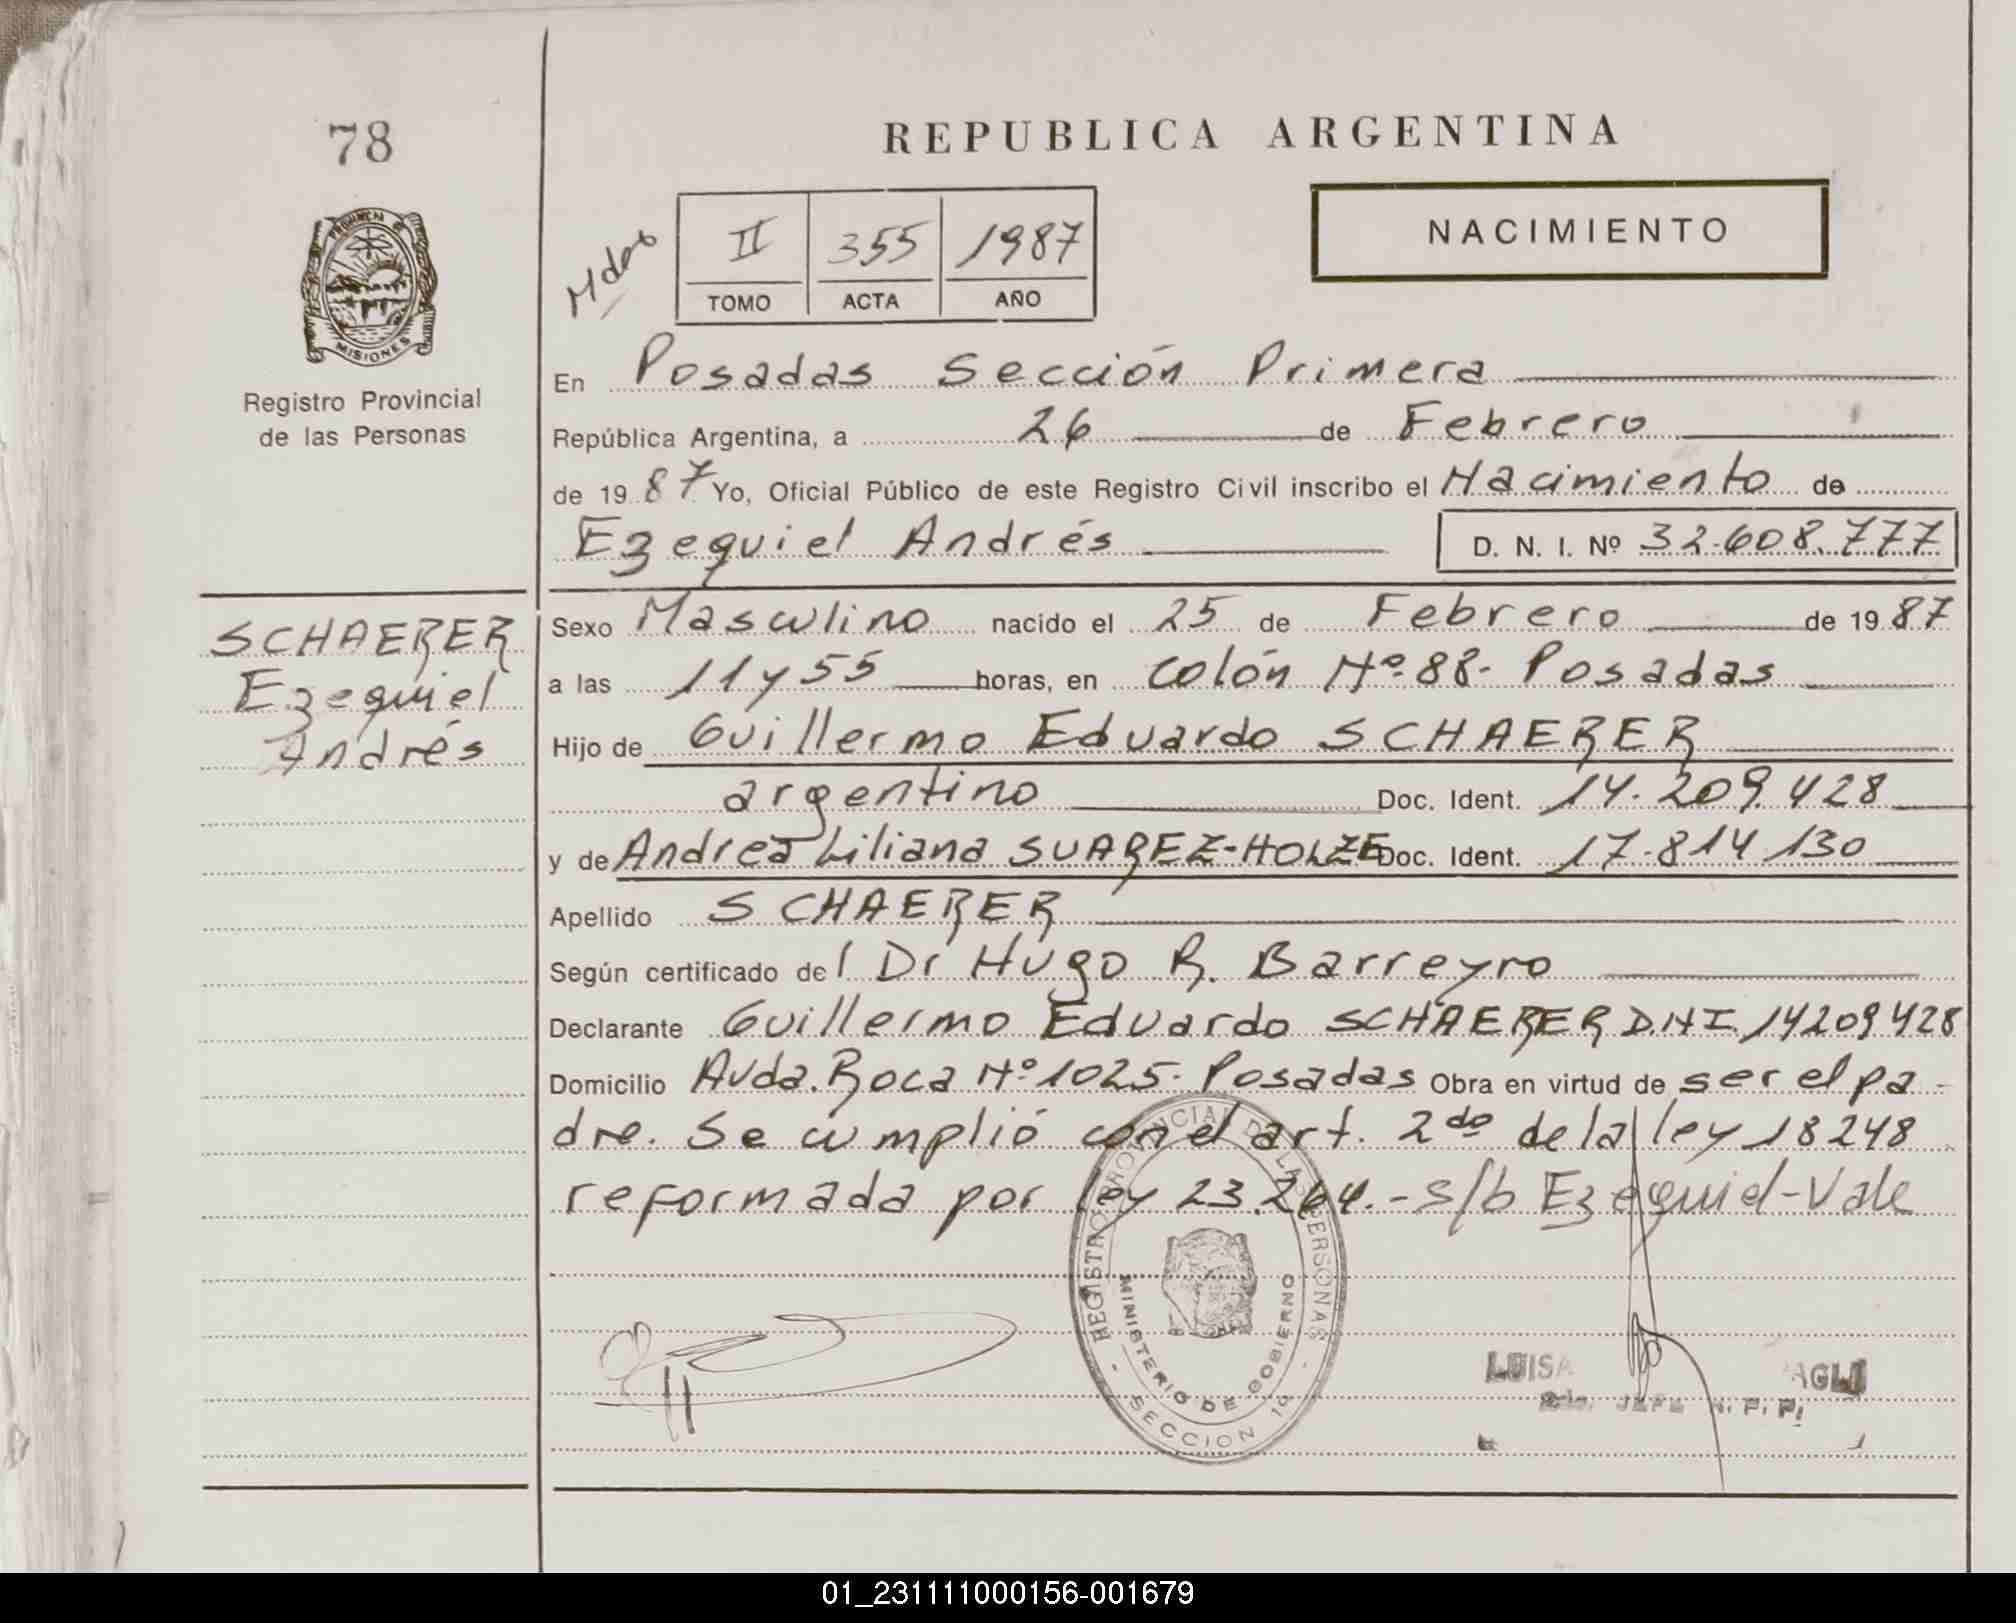 78
REPUBLICA ARGENTINA
NACIMIENTO
II 355 1987
TOMO ACTA AÑO
PROVINCIA DE
MISIONES
Registro Provincial
de las Personas
En Posadas Sección Primera
República Argentina, a 26 de Febrero
de 1987 Yo, Oficial Público de este Registro Civil inscribo el Nacimiento de
Ezequiel Andrés D. N. I. Nº 32.608.777
SCHAERER
Ezequiel
Andrés
Sexo Masculino nacido el 25 de Febrero de 1987
a las 11 y 55 horas, en Colón Nº 88- Posadas
Hijo de Guillermo Eduardo SCHAERER
argentino Doc. Ident. 14.209.428
y de Andrea Liliana SUAREZ-HOLZE Doc. Ident. 17.814 130
Apellido SCHAERER
Según certificado del Dr Hugo R. Barreyro
Declarante Guillermo Eduardo SCHAERER D.N.I. 14209428
Domicilio Avda. Roca Nº 1025- Posadas Obra en virtud de ser el pa-
dre. Se cumplió con el art. 2do de la ley 18248
reformada por ley 23.264.- s/b Ezequiel-Vale
REGISTRO PROVINCIAL DE LAS PERSONAS
MINISTERIO DE GOBIERNO
SECCION 1ª
LUISA
JEFE R. P. P.
01_231111000156-001679